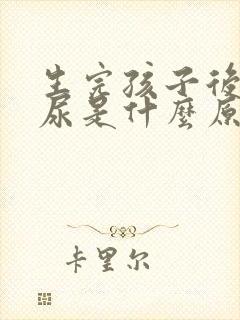 生完孩子後
尿是什麼原
卡里尔